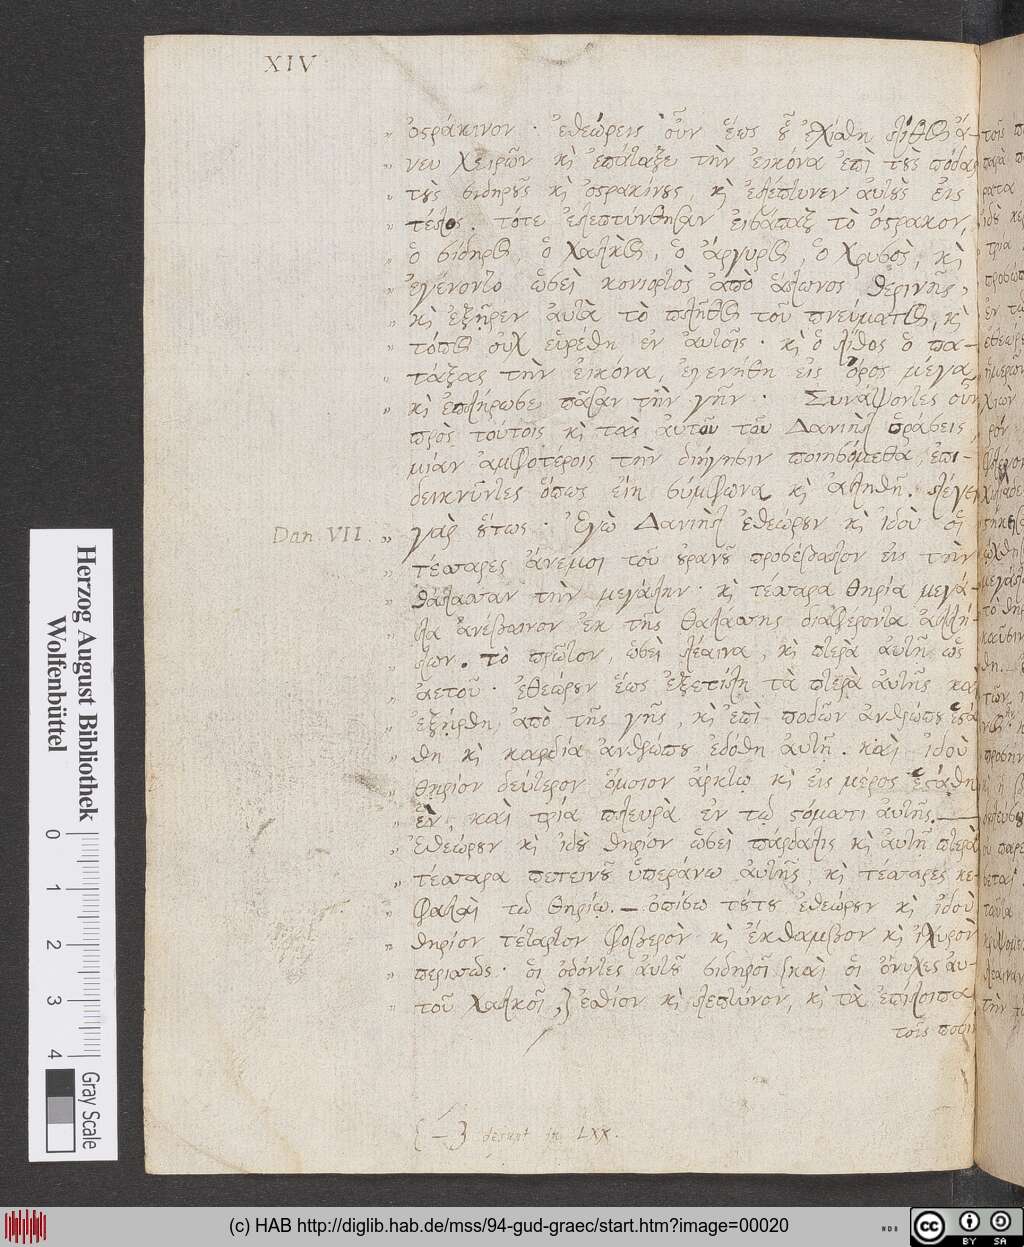 XIV
„ ὀστράκινον · ἐθεώρεις οὖν ἕως οὗ ἐσχίσθη λίθος ἄ-
„ νευ χειρῶν κὶ ἐπάταξε τὴν εἰκόνα ἐπὶ τοὺς πόδας
„ τοὺς σιδηροῦς κὶ ὀστρακίνους, κὶ ἐλέπτυνεν αὐτοὺς εἰς
„ τέλος. τότε ἐλεπτύνθησαν εἰσάπαξ τὸ ὄστρακον,
„ ὁ σίδηρος, ὁ χαλκὸς, ὁ ἄργυρος, ὁ χρυσὸς, κὶ
„ ἐγένοντο ὡσεὶ κονιορτὸς ἀπὸ ἅλωνος θερινῆς,
„ κὶ ἐξῇρεν αὐτὰ τὸ πλῆθος τοῦ πνεύματος, κὶ
„ τόπος οὐχ εὑρέθη ἐν αὐτοῖς · κὶ ὁ λίθος ὁ πα-
„ τάξας τὴν εἰκόνα, ἐγενήθη εἰς ὄρος μέγα
„ κὶ ἐπλήρωσε πᾶσαν τὴν γῆν · Συνάψοντες οὖν
πρὸς τούτοις κὶ τὰς αὐτοῦ τοῦ Δανιὴλ ὁράσεις,
μίαν ἀμφοτέροις τὴν διήγησιν ποιησόμεθα, ἐπι-
δεικνῦντες ὅπως εἴη σύμφωνα κὶ ἀληθῆ. λέγει
Dan. VII. „ γὰρ οὕτως · Ἐγὼ Δανιὴλ ἐθεώρουν κὶ ἰδοὺ οἱ
„ τέσσαρες ἄνεμοι τοῦ οὐρανοῦ προσέβαλον εἰς τὴν
„ θάλασσαν τὴν μεγάλην · κὶ τέσσαρα θηρία μεγά-
„ λα ἀνέβαινον ἐκ τῆς θαλάσσης διαφέροντα ἀλλή-
„ λων. τὸ πρῶτον, ὡσεὶ λέαινα, κὶ πτερὰ αὐτῇ ὡς
„ ἀετοῦ · ἐθεώρουν ἕως ἐξετίλη τὰ πτερὰ αὐτῆς καὶ
„ ἐξήρθη ἀπὸ τῆς γῆς, κὶ ἐπὶ ποδῶν ἀνθρώπου ἐστά
„ θη κὶ καρδία ἀνθρώπου ἐδόθη αὐτῇ. καὶ ἰδοὺ
„ θηρίον δεύτερον ὅμοιον ἄρκτῳ κὶ εἰς μέρος ἐστάθη
„ ἓν, καὶ τρία πλευρὰ ἐν τῷ στόματι αὐτῆς.—
„ Ἐθεώρουν κὶ ἰδοὺ θηρίον ὡσεὶ πάρδαλις κὶ αὐτῇ πτερὰ
„ τέσσαρα πετεινοῦ ὑπεράνω αὐτῆς, κὶ τέσσαρες κε-
„ φαλαὶ τῷ θηρίῳ.— ὀπίσω τούτου ἐθεώρουν κὶ ἰδοὺ
„ θηρίον τέταρτον φοβερὸν κὶ ἔκθαμβον κὶ ἰσχυρὸν
„ περισσῶς · οἱ ὀδόντες αὐτοῦ σιδηροῖ {καὶ οἱ ὄνυχες αὐ-
„ τοῦ χαλκοῖ,} ἐσθίον κὶ λεπτύνον, κὶ τὰ ἐπίλοιπα
τοῖς ποσὶν
{—} desunt in LXX.
Herzog August Bibliothek
Wolfenbüttel
0 1 2 3 4
Gray Scale
(c) HAB http://diglib.hab.de/mss/94-gud-graec/start.htm?image=00020
WDB
cc BY SA